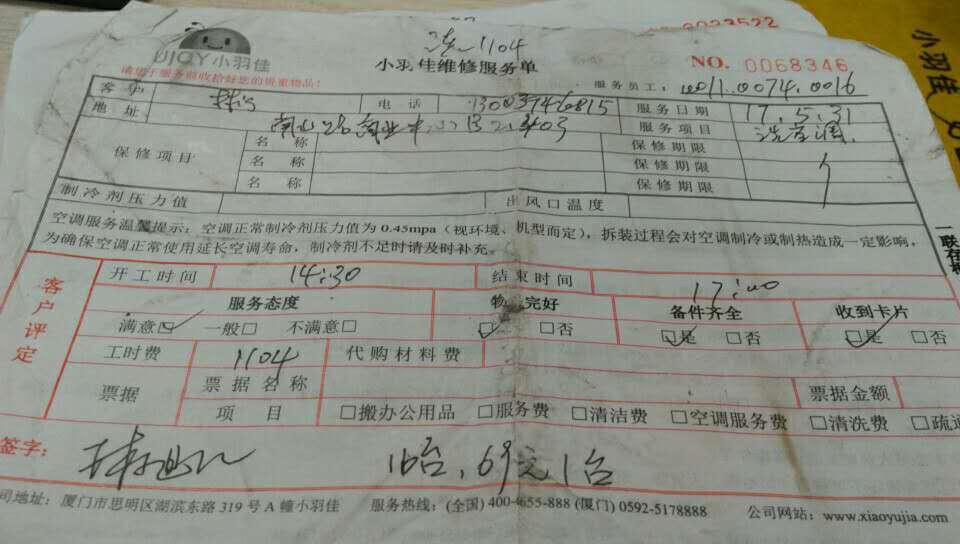 0023522
洗 1104
UJOY小羽佳
小羽佳维修服务单
NO. 0068346
请您于服务前收拾好您的贵重物品!
服务员工: 0011.0074.0016
客户 林 电话 服务日期 17.5.31
地址 服务项目 洗
保修项目 名称 保修期限
名称 保修期限
名称 保修期限
制冷剂压力值 出风口温度
空调服务温馨提示: 空调正常制冷剂压力值为 0.45mpa (视环境、机型而定), 拆装过程会对空调制冷或制热造成一定影响,
为确保空调正常使用延长空调寿命, 制冷剂不足时请及时补充。
客户评定
开工时间 14:30 结束时间 17:00
服务态度 物 完好 备件齐全 收到卡片
满意☑ 一般□ 不满意□ ☑ □否 ☑是 □否 ☑是 □否
工时费 1104 代购材料费
票据 票据名称 票据金额
项目 □搬办公用品 □服务费 □清洁费 □空调服务费 □清洗费 □疏通
签字: 林 16台, 69元1台
司地址: 厦门市思明区湖滨东路 319 号 A 幢小羽佳 服务热线: (全国) 400-4655-888 (厦门) 0592-5178888 公司网站: www.xiaoyujia.com
小羽佳
一联存根